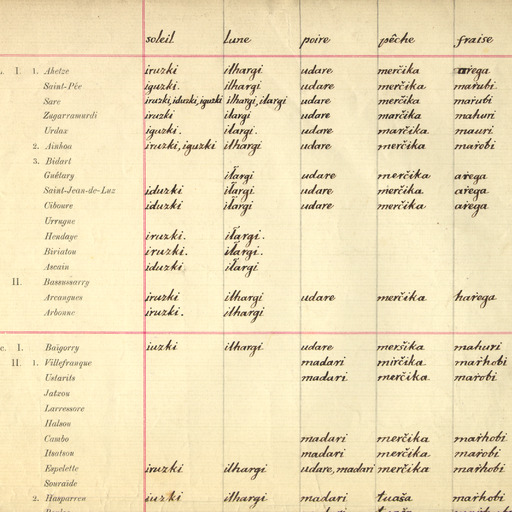 soleil lune poire pêche fraise
I. 1. Ahetze iruzki ilhargi udare merčika ařega
Saint-Pée iguzki. ilhargi udare merčika mařubi
Sare iruzki, iduzki, iguzki ilhargi, ilargi udare merčika mařubi
Zugarramurdi iruzki ilargi udare marčika mahuri
Urdax iguzki. ilargi. udare marčika mauri
2. Ainhoa iruzki, iguzki ilhargi udare merčika mařobi
3. Bidart
Guétary iłargi udare merčika ařega
Saint-Jean-de-Luz iduzki iłargi udare merčika ařega
Ciboure iduzki iłargi udare merčika ařega
Urrugne
Hendaye iruzki. iłargi.
Biriatou iruzki. iłargi.
Ascain iduzki iłargi
II. Bassussarry
Arcangues iruzki ilhargi udare merčika hařega
Arbonne iruzki. ilhargi
c. I. Baïgorry iuzki ilhargi udare meršika mahuri
II. 1. Villefranque madari mirčika mařhobi
Ustarits madari merčika mařobi
Jatxou
Larressore
Halsou
Cambo madari merčika mařhobi
Itsatsou madari merčika mařobi
Espelette iruzki ilhargi udare, madari merčika mařhobi
Souraïde
2. Hasparren iuzki ilhargi madari tuaša mařhobi